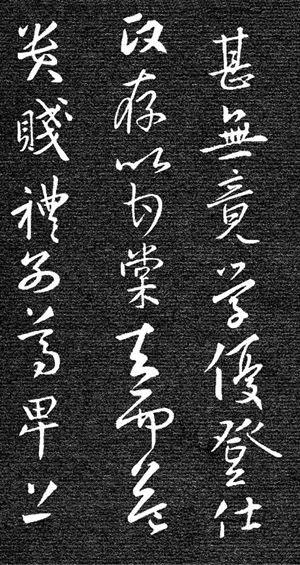 甚無竟学優登仕
政存以甘棠去而益
貴賤禮別尊卑上